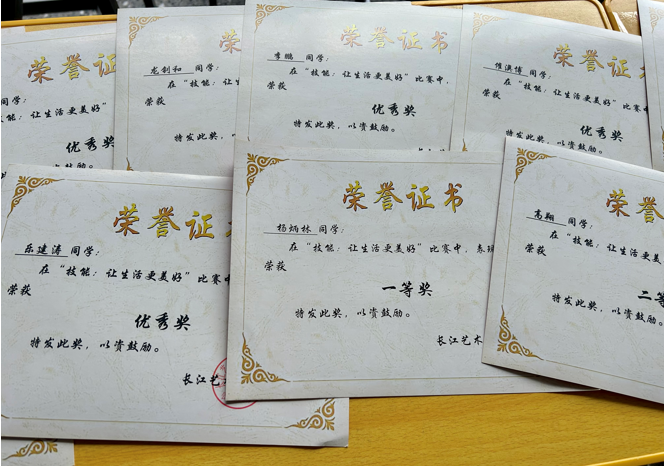 荣誉证
同学:
么, 让生活更美好"
优秀奖
资鼓励。
荣
龙剑和 同学:
在"技能: 让生
荣获
特发此
荣誉证书
李鹏 同学:
在"技能: 让生活更美好"比赛中,
荣获
优秀奖
特发此奖, 以资鼓励。
长江
荣誉证
惟淇博 同学:
在"技能: 让生活更美好"比赛中
荣获
优秀奖
特发此奖, 以资鼓励。
荣誉证书
乐建涛 同学:
在"技能: 让生活更美好"比赛中
荣获
优秀奖
特发此奖, 以资鼓励。
长江艺术
荣誉证书
杨炳林 同学:
在"技能: 让生活更美好"比赛中, 表现
荣获
一等奖
特发此奖, 以资鼓励。
长江艺术
荣誉
高翔 同学:
在"技能: 让生活更美
荣获
二等
特发此奖, 以资鼓励。